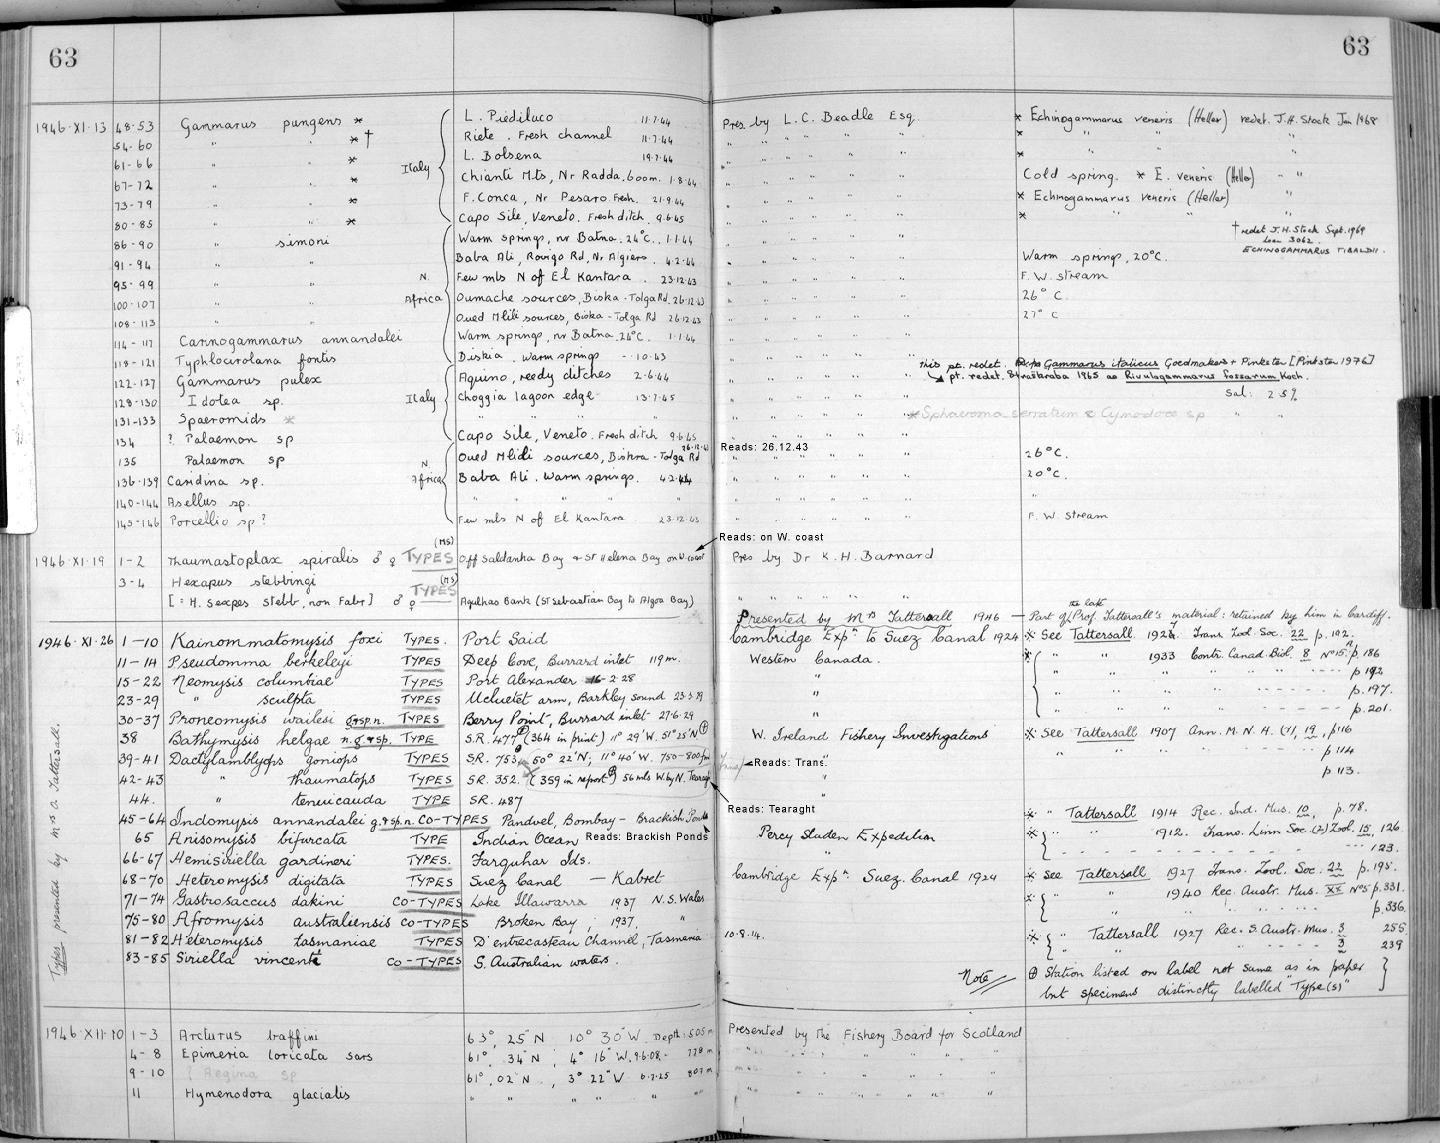 63
63
1946·XI·13 48-53 Gammarus pungens * L. Piediluco 11.7.44 Pres. by L.C. Beadle Esq. * Echinogammarus veneris (Heller) redet. J.H. Stock Jan 1968
54-60 " " *† Riete. Fresh channel 11.7.44 " " " " * " " " "
61-66 " " * Italy L. Bolsena 19.7.44 " " " " *
67-72 " " * Chianti Mts, Nr Radda. 600m. 1.8.44 " " " " Cold spring. * E. veneris (Heller) " "
73-79 " " * F. Conca, Nr Pesaro. Fresh. 21.9.44 " " " " * Echinogammarus veneris (Heller)
80-85 " " * Capo Sile, Veneto. Fresh ditch 9.6.45 " " " " * " " " "
86-90 " simoni Warm springs, nr Batna. 26°C. 1.1.44 " " " " † redet J.H. Stock Sept. 1969
Loan 3062.
ECHINOGAMMARUS TIBALDII.
91-94 " " Baba Ali, Rovigo Rd, Nr Algiers. 4.2.44 " " " " Warm springs, 20°C.
95-99 " " N. Africa Few mls N of El Kantara. 23.12.43 " " " " F.W. stream
100-107 " " Oumache sources, Biska-Tolga Rd. 26.12.43 " " " " 26°C.
108-113 " " Oued Mlili sources, Biska-Tolga Rd 26.12.43 " " " " 27°C
114-117 Carinogammarus annandalei Warm springs, nr Batna. 26°C. 1.1.44 " " " "
118-121 Typhlocirolana fontis Diskia. Warm springs -.10.43 " " " "
122-127 Gammarus pulex Aquino, reedy ditches 2.6.44 " " " " this pt. redet. Gammarus italicus Goedmakers + Pinkster [Pinkster 1976]
pt. redet. Straškraba 1965 as Rivulogammarus fossarum Koch.
128-130 Idotea sp. Italy Choggia lagoon edge 13.7.45 " " " " Sal: 25%
131-133 Spaeromids * " " " " " * Sphaeroma serratum & Cymodoce sp " "
134 ? Palaemon sp Capo Sile, Veneto. Fresh ditch 9.6.45
135 Palaemon sp Oued Mlili sources, Biskra-Tolga Rd 26.12.43 Reads: 26.12.43 " " " " 26°C.
136-139 Caridina sp. N. Africa Baba Ali. Warm springs. 4.2.44 " " " " 20°C.
140-144 Asellus sp. " " " " " " " " " "
145-146 Porcellio sp? Few mls N of El Kantara 23.12.43 " " " " F.W. stream
Reads: on W. coast
1946·XI·19 1-2 Thaumastoplax spiralis ♂ ♀ TYPES (MS) Off Saldanha Bay & St Helena Bay on W coast Pres by Dr K.H. Barnard
3-4 Hexapus stebbingi TYPES (MS)
[= H. sexpes Stebb, non Fabr] ♂ ♀ Agulhas Bank (St Sebastian Bay to Algoa Bay) " " " " "
Presented by Mrs Tattersall 1946 — Part of the late Prof. Tattersall's material: retained by him in Cardiff.
1946·XI·26 1-10 Kainommatomysis foxi TYPES. Port Said Cambridge Expn to Suez Canal 1924 * See Tattersall 1927 Trans Zool. Soc. 22 p. 192.
11-14 Pseudomma berkeleyi TYPES Deep Cove, Burrard inlet 119 m. Western Canada. * " " 1933 Contr. Canad. Biol. 8 No 15. p. 186
15-22 Neomysis columbiae TYPES Port Alexander 16-2-28 " " " " " p 192
23-29 " sculpta TYPES Ucluetet arm, Barkley sound 23.3.29 " " " " " p. 197.
30-37 Proneomysis wailesi g&sp.n. TYPES Berry Point, Burrard inlet 27.6.29 " " " " " p. 201.
38 Bathymysis helgae n.g&sp. TYPE S.R. 477 ⊕ (364 in print) 11° 29'W. 51° 25'N ⊕ W. Ireland Fishery Investigations * See Tattersall 1907 Ann. M.N.H. (7), 19, p 116
39-41 Dactylamblyops goniops TYPES SR. 753, 50° 22'N; 11° 40'W. 750-800 fm Reads: Trans. " " " " " p 114
42-43 " thaumatops TYPES SR. 352. (359 in report ⊕) 56 mls W. by N. Tearaght " p 113.
44. " tenuicauda TYPE SR. 487 Reads: Tearaght
45-64 Indomysis annandalei g.&sp.n. CO-TYPES Panvel, Bombay - Brackish Ponds * " Tattersall 1914 Rec. Ind. Mus. 10, p. 78.
65 Anisomysis bifurcata TYPE Indian Ocean Reads: Brackish Ponds Percy Sladen Expedition * " " 1912. Trans. Linn Soc. (2) Zool. 15, 126.
66-67 Hemisiriella gardineri TYPES. Farquhar Ids. " " " 123.
68-70 Heteromysis digitata TYPES Suez Canal — Kabret Cambridge Expn. Suez. Canal 1924 * See Tattersall 1927 Trans. Zool. Soc. 22 p. 195.
71-74 Gastrosaccus dakini CO-TYPES Lake Illawarra 1937 N.S. Wales * " " 1940 Rec. Austr. Mus. XX No 5 p. 331.
75-80 Afromysis australiensis CO-TYPES Broken Bay; 1937 " " " " p. 336.
81-82 Heteromysis tasmaniae TYPES D'entrecasteau Channel, Tasmania 10.8.14. * " Tattersall 1927 Rec. S. Austr. Mus. 3 255
83-85 Siriella vincenti CO-TYPES S. Australian waters. " " " 3 239
Note ⊕ Station listed on label not same as in paper
but specimens distinctly labelled "Type(s)"
Types presented by Mrs O. Tattersall.
1946·XII·10 1-3 Arcturus baffini 63°, 25'N 10° 30'W. Depth: 505 m Presented by the Fishery Board for Scotland
4-8 Epimeria loricata sars 61°, 34'N; 4° 16'W. 9.6.08. 778 m " " " " "
9-10 ? Aegina sp 61°, 02'N; 3° 22'W 6.7.25 807 m " " " " "
11 Hymenodora glacialis " " " " " " " " " "